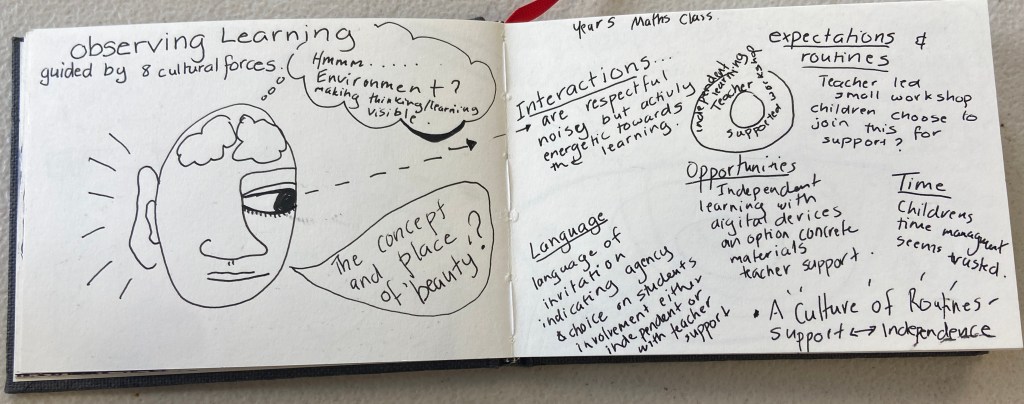 observing Learning
guided by 8 cultural forces.
Hmmm......
Environment?
making thinking/learning
visible
The concept
and place
of 'beauty'?
Year 5 Maths Class.
Interactions...
→ are respectful
noisy but activly
energetic towards
the learning.
independent learning
Teacher
supported
expectations &
routines
Teacher led
small workshop
children choose to
join this for
support?
Opportunities
Independent
learning with
digital devices
an option concrete
materials
teacher support.
Time
Childrens
time managment
seems trustd.
Language
language of
invitation
indicating agency
& choice on students
involvement either
independent or
with teacher
support
• A "Culture" of Routines -
Support ↔ Independence